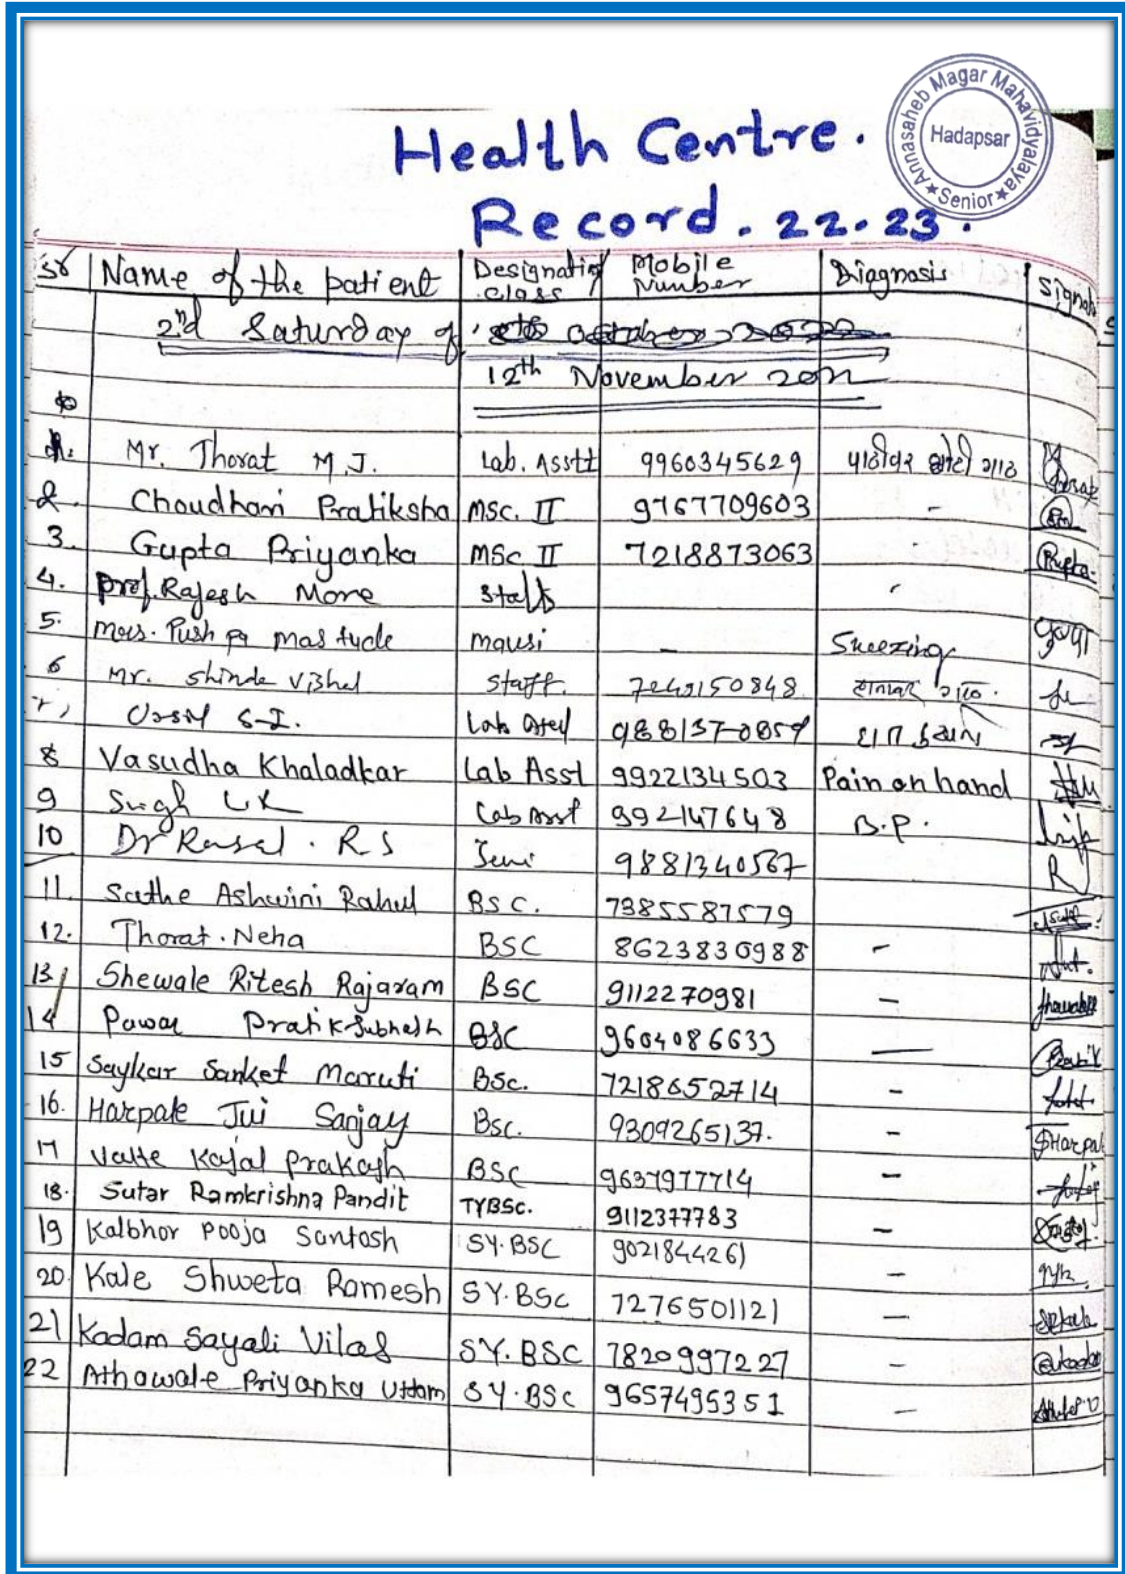 Annasaheb Magar Mahavidyalaya
Hadapsar
★ Senior ★
Health Centre.
Record. 22-23.
Sr Name of the patient Designation class Mobile Number Diagnosis
2nd Saturday of
12th November 2022
1. Mr. Thorat M.J. Lab. Asstt 9960345629 पाठीवर छोटी गाठ
2. Choudhari Pratiksha MSc. II 9767709603 -
3. Gupta Priyanka MSc II 7218873063 -
4. Prof. Rajesh More Staff
5. Mrs. Pushpa mausi - Sneezing पुष्पा
6 Mr. Shinde Vishal Staff. 7249150848 गाठ.
7, S.I. Lab
8 Vasudha Khaladkar Lab Asst 9922134503 Pain on hand
9 Singh Lab Asst 992147648 B.P.
10 Dr Rasal. R S 9881340567 R
11. Sathe Ashwini Rahul BSC. 7385587579
12. Thorat. Neha BSC 8623830988 -
13 Shewale Ritesh Rajaram BSC 9112270981 -
14 Pawar Pratik Subhash BSC 9604086633 - Pratik
15 Saykar Sanket Maruti BSc. 7218652714 -
16. Harpale Jui Sanjay Bsc. 9309265137. - Harpal
17 Kajal Prakash BSC 9637977714 -
18. Sutar Ramkrishna Pandit TYBSc. 9112377783 -
19 Kalbhor Pooja Santosh SY.BSC 9021844261 -
20. Kale Shweta Ramesh SY.BSc 7276501121 - SRkale
21 Kadam Sayali Vilas SY.BSC 7820997227 -
22 Athawale Priyanka Uttam SY.BSc 9657495351 -